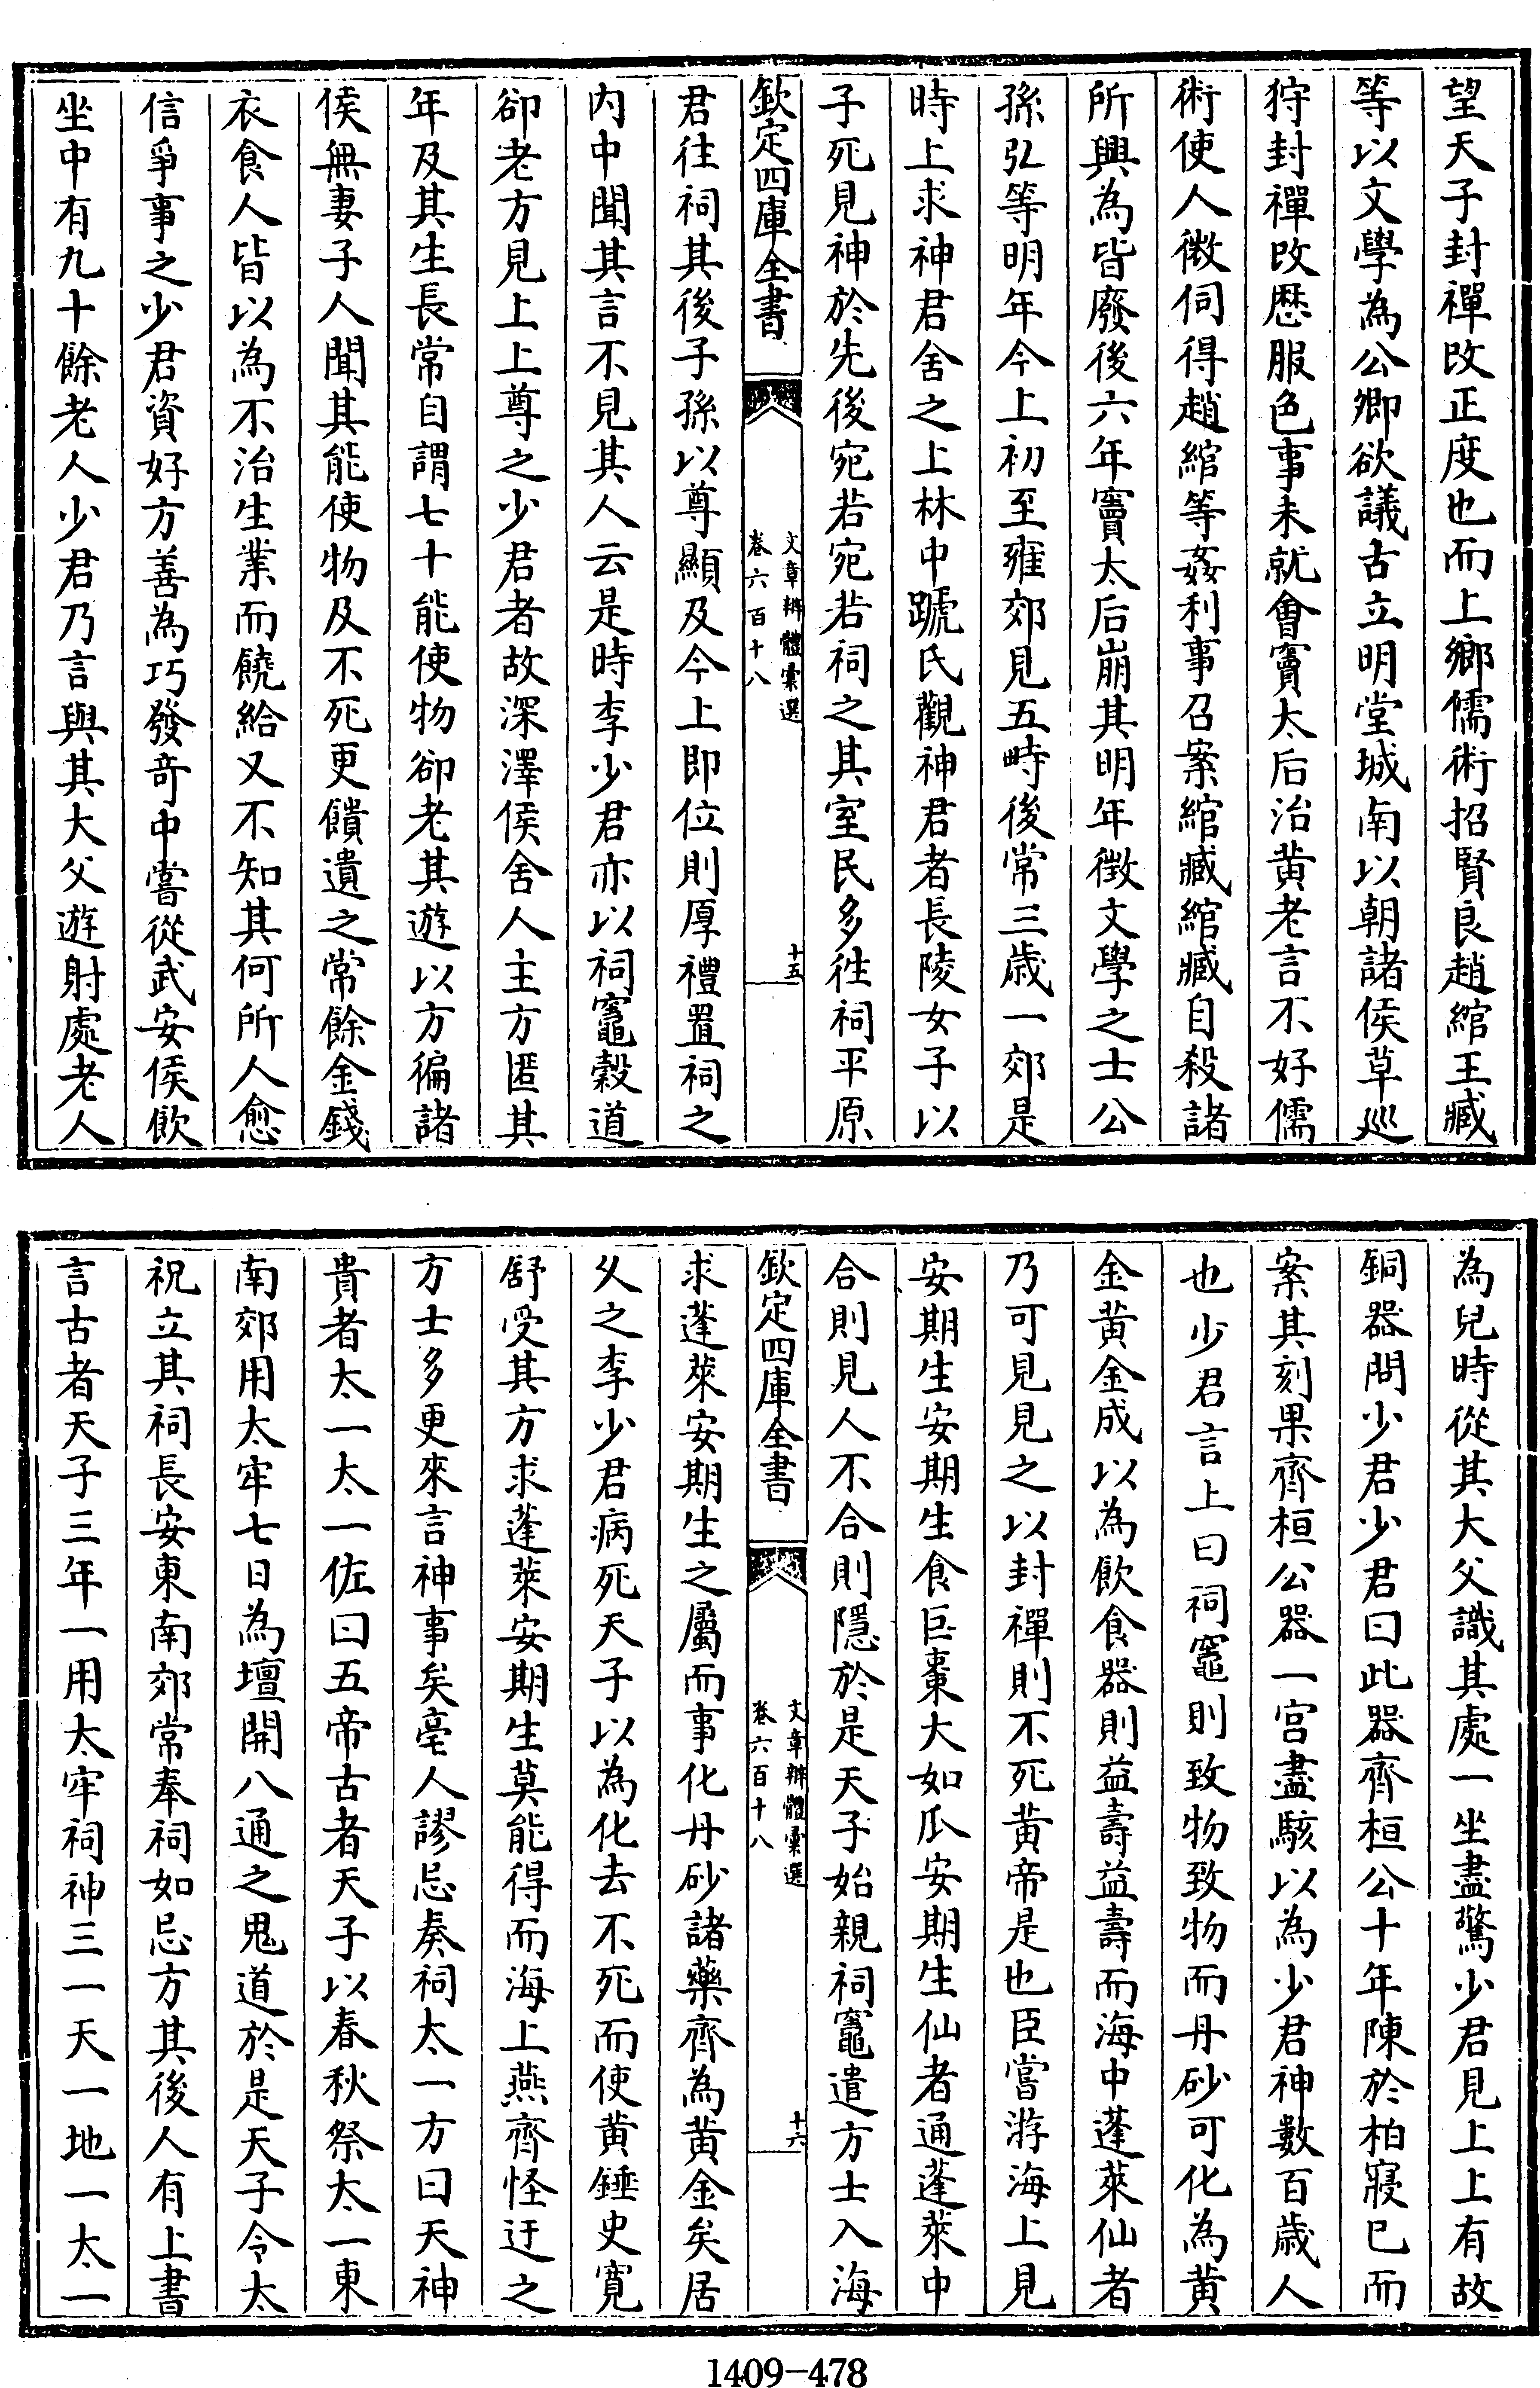 望天子封禪改正度也而上鄉儒術招賢良趙綰王臧
等以文學為公卿欲議古立明堂城南以朝諸侯草巡
狩封禪改厯服色事未就會竇太后治黄老言不好儒
術使人微伺得趙綰等姦利事召案綰臧綰臧自殺諸
所興為皆廢後六年竇太后崩其明年徴文學之士公
孫弘等明年今上初至雍郊見五畤後常三歳一郊是
時上求神君舍之上林中蹏氏觀神君者長陵女子以
子死見神於先後宛若宛若祠之其室民多往祠平原
欽定四庫全書
文章辨體彙選
卷六百十八
十五
君往祠其後子孫以尊顯及今上即位則厚禮置祠之
内中聞其言不見其人云是時李少君亦以祠竈穀道
卻老方見上上尊之少君者故深澤侯舍人主方匿其
年及其生長常自謂七十能使物卻老其遊以方徧諸
侯無妻子人聞其能使物及不死更饋遺之常餘金錢
衣食人皆以為不治生業而饒給又不知其何所人愈
信爭事之少君資好方善為巧發奇中嘗從武安侯飲
坐中有九十餘老人少君乃言與其大父遊射處老人
為兒時從其大父識其處一坐盡驚少君見上上有故
銅器問少君少君曰此器齊桓公十年陳於柏寢已而
案其刻果齊桓公器一宫盡駭以為少君神數百歳人
也少君言上曰祠竈則致物致物而丹砂可化為黄
金黄金成以為飲食器則益壽益壽而海中蓬萊仙者
乃可見見之以封禪則不死黄帝是也臣嘗游海上見
安期生安期生食巨棗大如瓜安期生仙者通蓬萊中
合則見人不合則隱於是天子始親祠竈遣方士入海
欽定四庫全書
文章辨體彙選
卷六百十八
十六
求蓬萊安期生之屬而事化丹砂諸藥齊為黄金矣居
久之李少君病死天子以為化去不死而使黄錘史寛
舒受其方求蓬萊安期生莫能得而海上燕齊怪迂之
方士多更來言神事矣亳人謬忌奏祠太一方曰天神
貴者太一太一佐曰五帝古者天子以春秋祭太一東
南郊用太牢七日為壇開八通之鬼道於是天子令太
祝立其祠長安東南郊常奉祠如忌方其後人有上書
言古者天子三年一用太牢祠神三一天一地一太一
1409-478